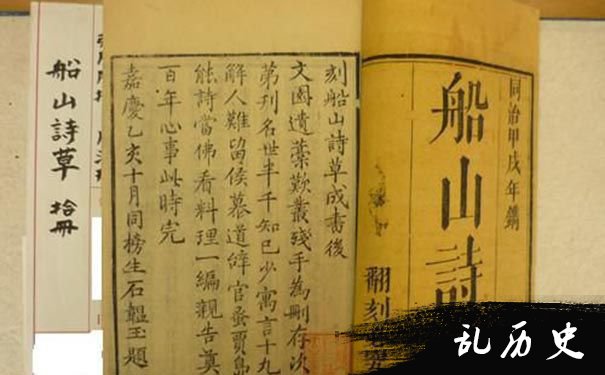 同治甲戌年鐫
船山詩
翻刻
刻船山詩草成書後
文園遺藁歎叢殘手為刪存次
第刊名世半千知己少寓言十九
解人難留侯慕道辭官蚤賈島
能詩當佛看料理一編親告奠
百年心事此時完
嘉慶乙亥十月同榜生石韞玉題
船山詩草 拾冊
乱历史